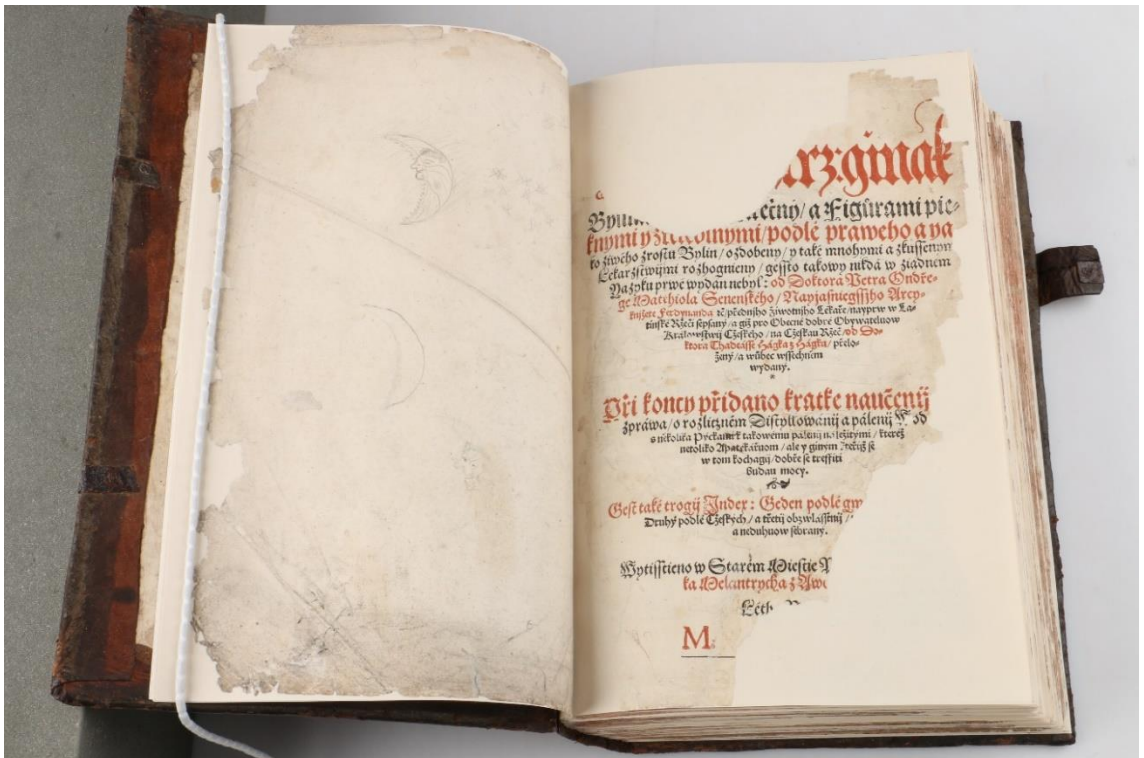 a
knymi y / podlé praweho a ya
ko žiwého zrostu Bylin / ozdobeny / y také mnohymi a zkussenym
Lékarzstwijmi rozhognieny / gessto takowy nikdá w žiadnem
Yazyku prwé wydán nebyl : od Doktora Petra Ondře-
ge Matthiola Senenského / Nayjasniegssyho Arcy-
knijžete Ferdynanda tč / přednijho žiwotnijho Lékaře / nayprw w La-
tinské Ržeči sepsany / a giž pro Obecné dobré Obywateluow
Kralowstwij Cžeského / na Cžeskau Ržeč / od Do-
ktora Thadeásse Hágka z Hágku / přelo-
žený / a wůbec wssechněm
wydaný.
Při koncy přidano kratké naučenij
zpráwa / o rozličzném Distyllowanij a pálenij
s několika Pýckami k takowému pálenij náležitými / kteréž
netoliko Apatekařuom / ale y giným se
w tom kochagij / dobře se treffiti
budau mocy.
Gest také trogij Index : Geden podlé
Druhý podlé Cžeských / a třetij obzwlásstnij /
a neduhuow sebrany.
Wytisstieno w Starém Miestie
ka Melantrycha z
M.